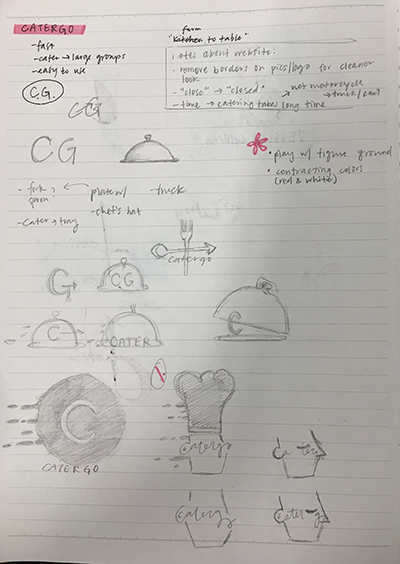 CATERGO
-fast
-cater → large groups
-easy to use
C.G.
CG
farm
"kitchen to table"
notes about website:
- remove borders on pics/logo for cleaner
look
- "close" → "closed"
not motorcycle
→ truck/
- time → catering takes long time
CG
• play w/ figure ground
• contrasting colors
(red & white)
- fork,
spoon
plate w/
- chef's hat
- truck
- cater → tray
Catergo
G
CG
C
CATER
C
C
CATERGO
Catergo
Caterg
Cater-go